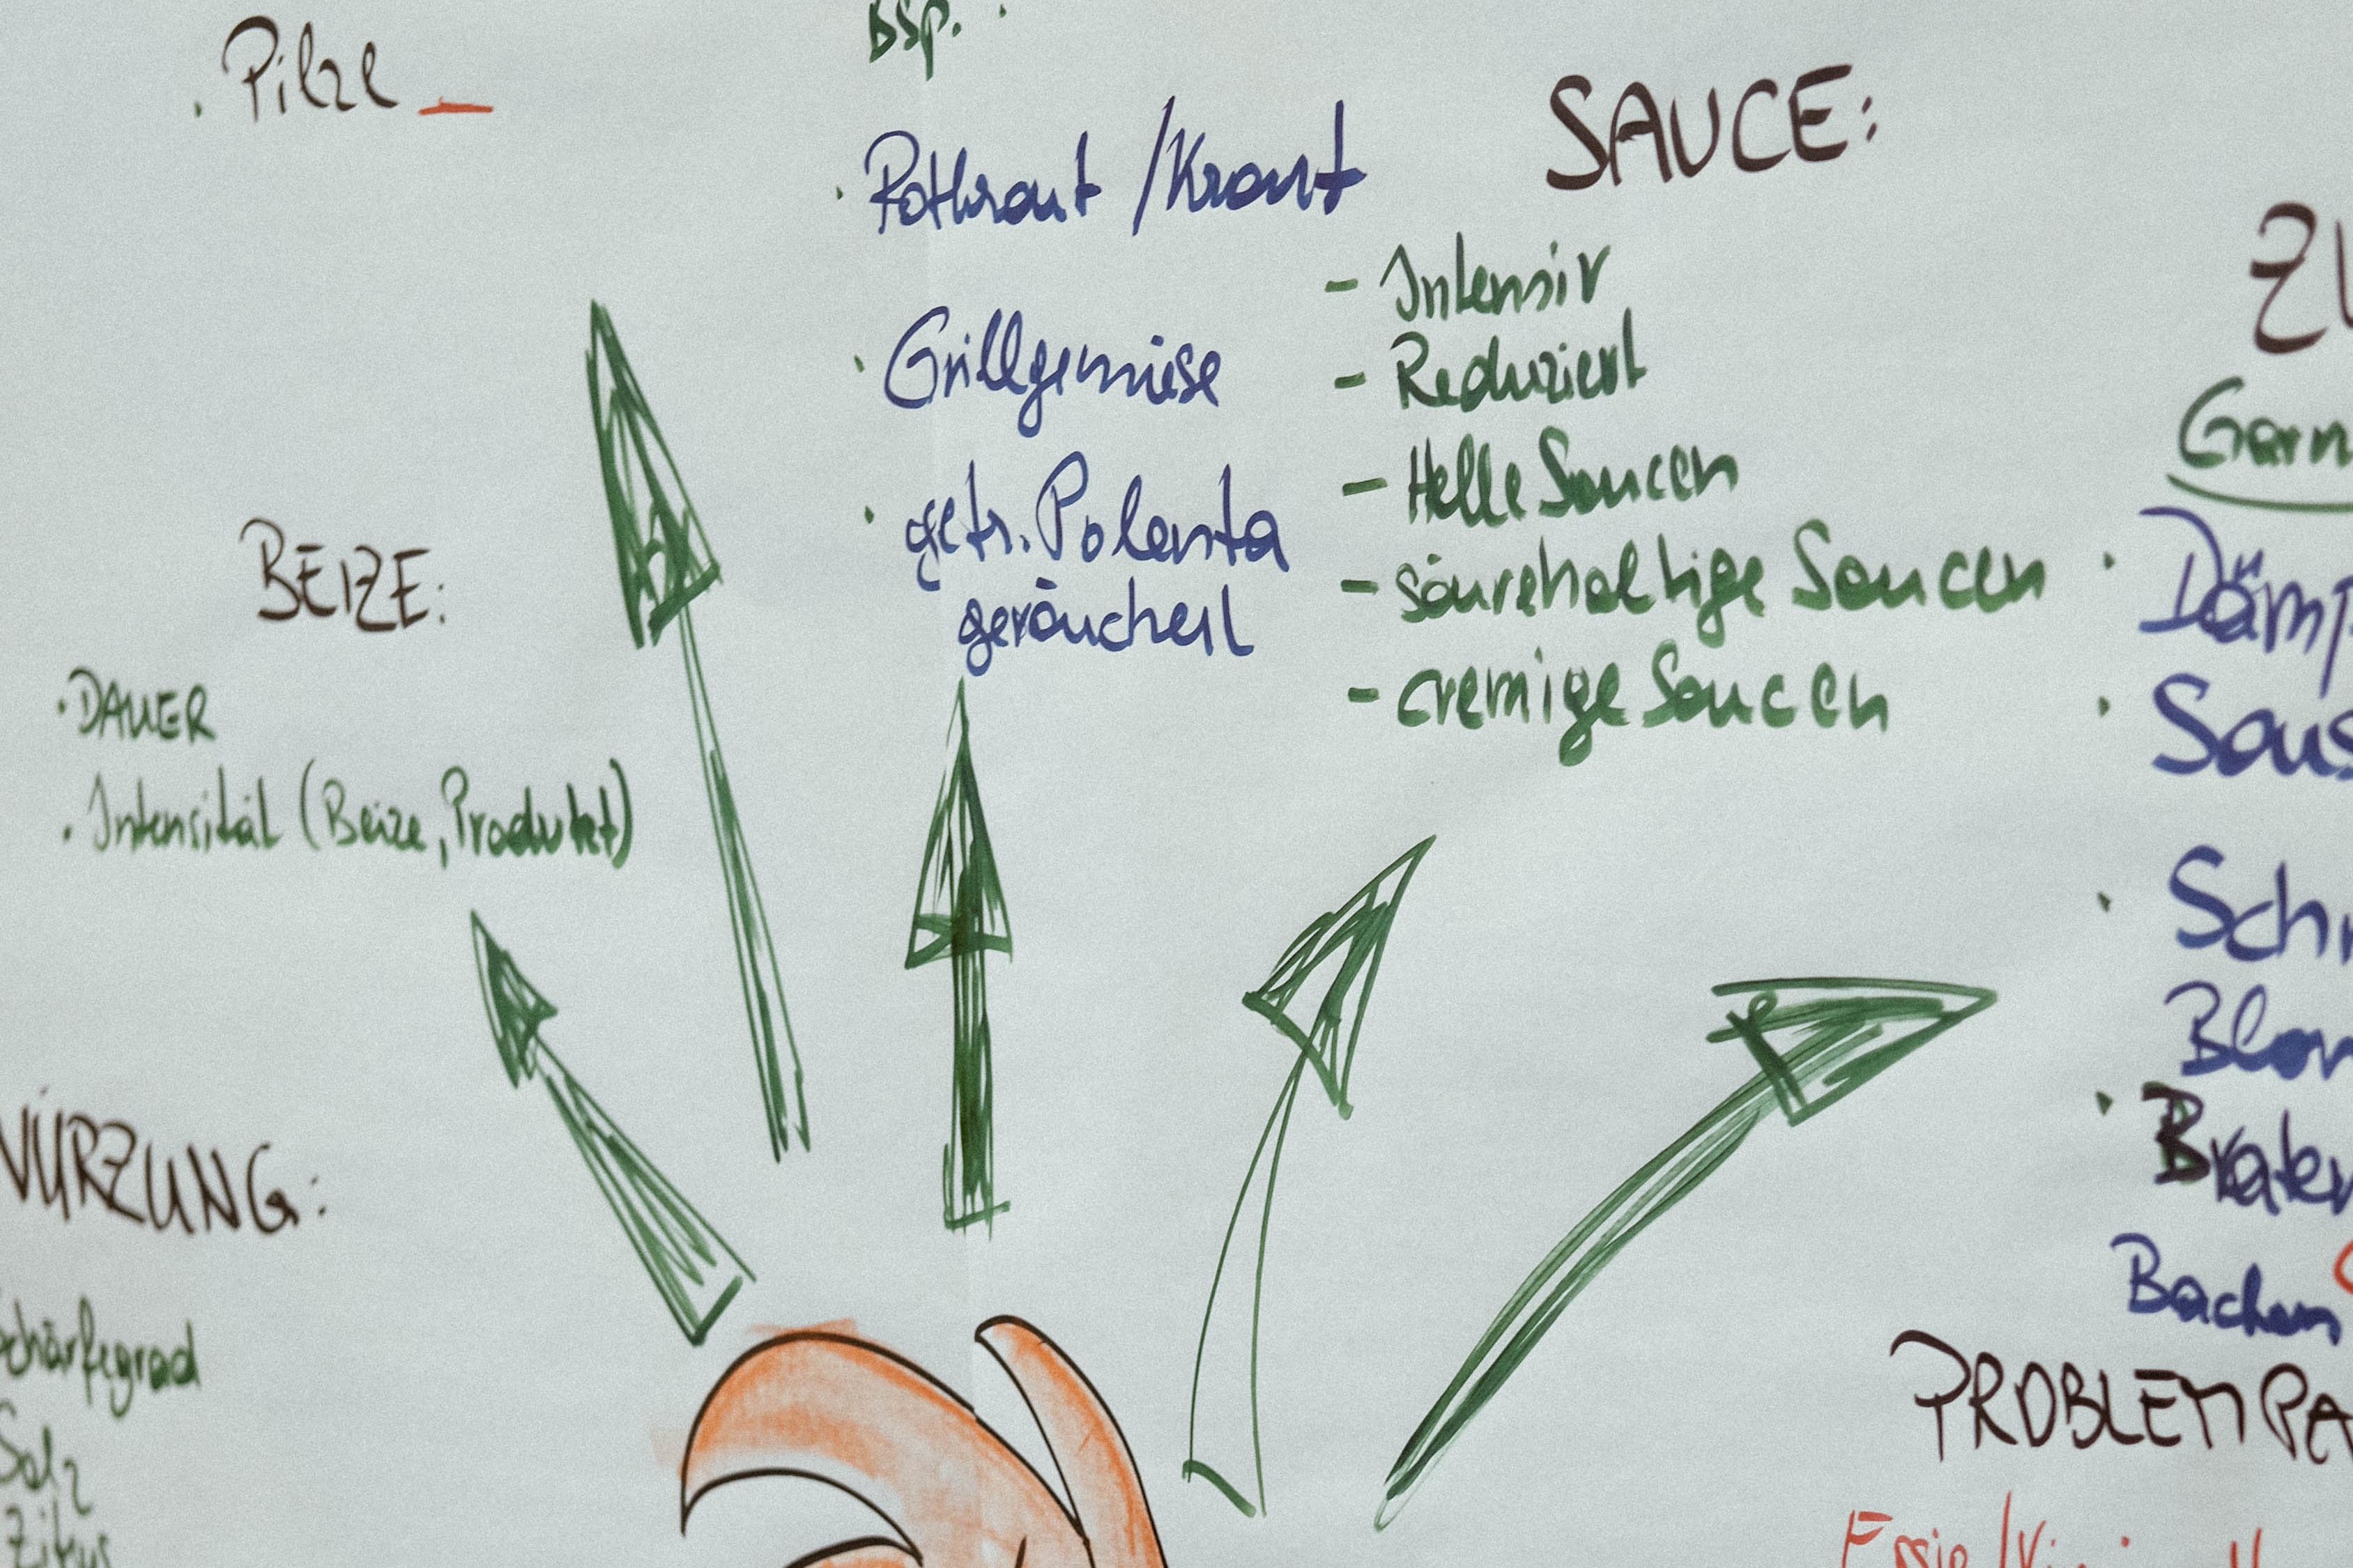 Pilze
Bsp.
Rotkraut / Kraut
Grillgemüse
getr. Polenta
geräuchert
SAUCE:
- Intensiv
- Reduziert
- Helle Saucen
- säurehaltige Saucen
- cremige Saucen
BEIZE:
· DAUER
· Intensität (Beize, Produkt)
WÜRZUNG:
Schärfegrad
Salz
Zitrus
ZU
Garn
Dämp
Sous
Sch
Braten
Backen
PROBLEMPA
Essig /